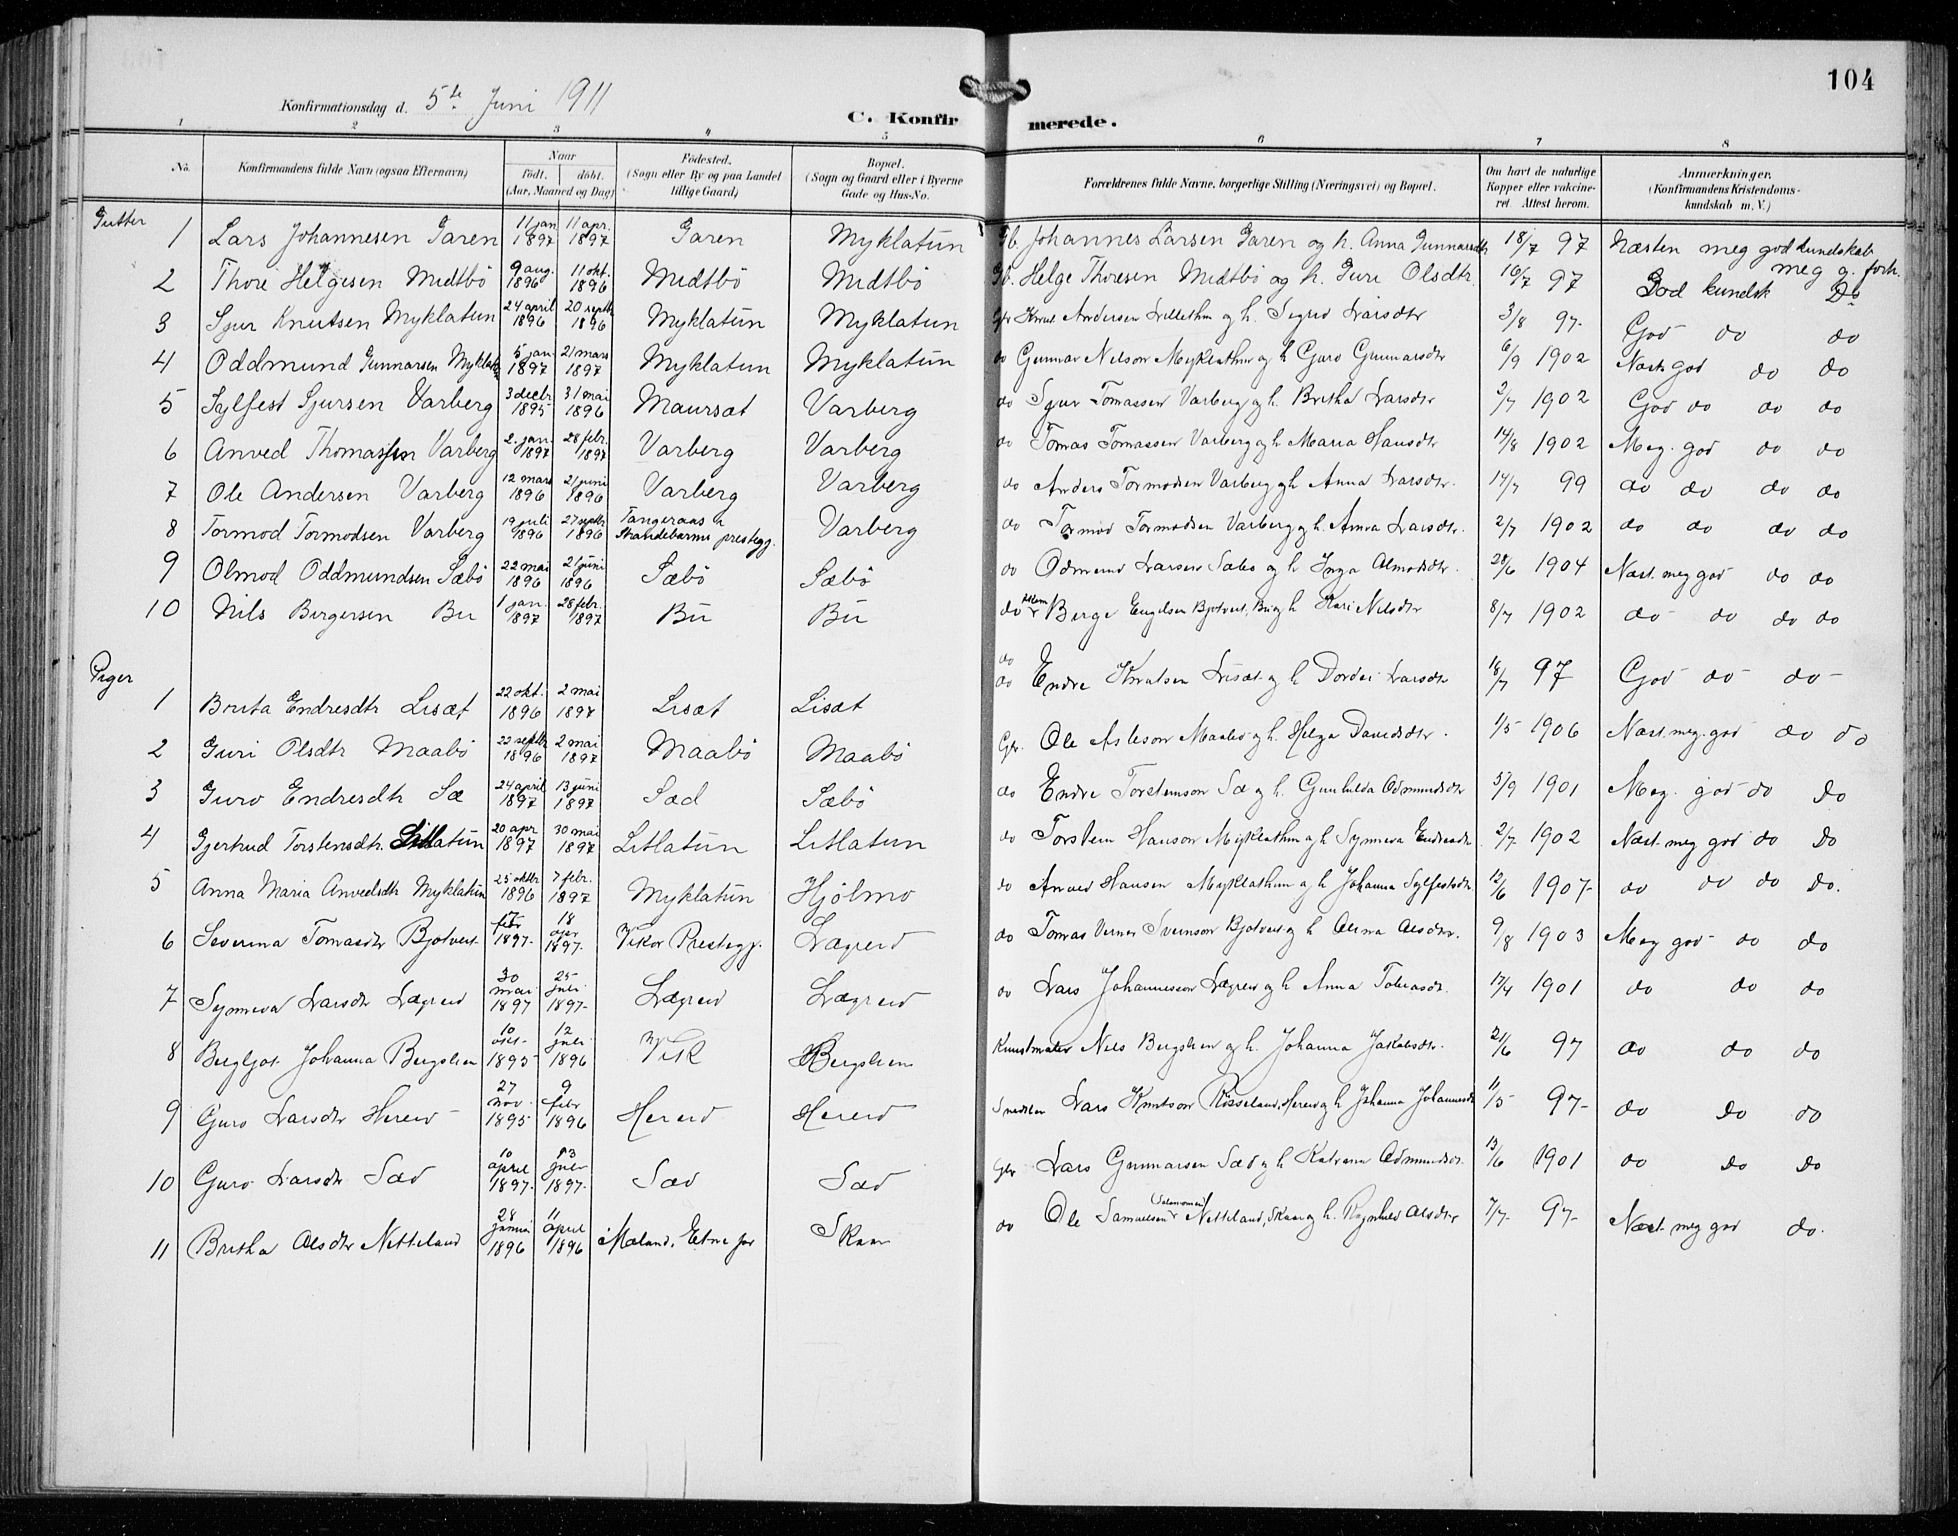 104
Konfirmationsdag d. 5te Juni 1911
C. Konfirmerede.
1 2 3 4 5 6 7 8
No. Konfirmandens fulde Navn (ogsaa Efternavn) Naar født. døbt. (Aar, Maaned og Dag) Fødested. (Sogn eller By og paa Landet tillige Gaard) Bopæl. (Sogn og Gaard eller i Byerne Gade og Hus-No. Forældrenes fulde Navne, borgerlige Stilling (Næringsvei) og Bopæl. Om havt de naturlige Kopper eller vakcineret. Attest herom. Anmerkninger. (Konfirmandens Kristendomskundskab m. V.)
Gutter
1 Lars Johannesen Garen 11 jan 1897 11 apr. 1897 Garen Myklatun Gb. Johannes Larsen Garen og h. Anna Gunnarsdtr 18/7 97 Næsten meg god kundskab meg g. forh.
2 Thore Helgesen Midtbö 9 aug. 1896 11 okt. 1896 Midtbö Midtbö Gb. Helge Thoresen Midtbö og h. Guri Olsdtr. 16/7 97 God kundsk Do
3 Sjur Knutsen Myklatun 24 april 1896 20 septbr 1896 Myklatun Myklatun Gbr Knut Andersen Lillethun og h. Sigrid Larsdtr 3/8 97 God do do
4 Oddmund Gunnarsen Myklatun 5 jan 1897 21 mars 1897 Myklatun Myklatun do Gunnar Nilson Myklathun og h Guro Gunnarsdtr 6/9 1902 Næst. god do do
5 Sylfest Sjursen Varberg 3 decbr 1895 31 mai 1896 Maursæt Varberg do Sjur Tomassen Varberg og h. Britha Larsdtr 2/7 1902 God do do do
6 Anved Thomassen Varberg 2. jan. 1897 28 febr. 1897 Varberg Varberg do Tomas Tomassen Varberg og h Maria Hansdtr 14/8 1902 Meg. god do do
7 Ole Andersen Varberg 12 mars 1896 21 juni 1896 Varberg Varberg do Anders Tormodsen Varberg og h Anna Larsdtr. 14/7 99 do do do do
8 Tormod Tormodsen Varberg 19 juli 1896 27 septbr 1896 Tangeraas i Strandebarms prestegj. Varberg do Tormod Tormodsen Varberg og h. Anna Larsdtr. 2/7 1902 do do do do
9 Olmod Oddmundsen Sæbö 22 mai 1896 21 juni 1896 Sæbö Sæbö do Odmund Larsen Sæbø og h Inga Olmodsdtr. 28/6 1904 Næst. meg god do do
10 Nils Bergersen Bu 1 jan. 1897 28 febr. 1897 Bu Bu do Berge Engelsen Bjotveit, Bu og h Kari Nilsdtr 8/7 1902 do do do do
Piger
1 Brita Endresdtr Lisæt 22 okt. 1896 2 mai 1897 Lisæt Lisæt do do Endre Knutsen Lisæt og h Dordei Larsdtr 18/7 97 God do do
2 Guri Olsdtr Maabö 22 septbr 1896 2 mai 1897 Maabö Maabö Gbr. Ole Asleson Maabö og h. Helga Davidsdtr. 1/5 1906 Næst. meg. god do do
3 Guro Endresdtr Sæ 24 april 1897 13 juni 1897 Sæd Sæbö do Endre Torsteinson Sæ og h. Gunhilda Odmundsdtr 5/9 1901 Meg. god do Do
4 Gjertrud Torstensdtr. Litlatun 20 apr 1897 30 mai 1897 Litlatun Litlatun do Torstein Hanson Myklathun og h Synneva Endresdtr 2/7 1902 Næst. meg god do Do
5 Anna Maria Anvedsdtr Myklatun 25 oktbr 1896 7 febr. 1897 Myklatun Hjölmo do Anved Hansen Myklathun og h Johanna Sylfestsdtr. 12/6 1907 do do do Do.
6 Severina Tomasdtr Bjotveit 17 febr 1897 18 apr 1897 Vikør Prestegj. Lægreid do Tomas Verner Sveinson Bjotveit og h Olina Olsdtr. 9/8 1903 Meg god do do
7 Synneva Larsdtr Lægreid 30 mai 1897 25 juli 1897 Lægreid Lægreid do Lars Johannesson Lægreid og h Anna Tobiasdtr. 17/4 1901 do do do
8 Bergljot Johanna Bergslien 10 okt. 1895 12 juli 1896 Vik Bergslien Kunstmaler Nils Bergslien og h. Johanna Jakobsdtr. 21/6 97 do do do
9 Guro Larsdtr Hereid 27 nov. 1895 9 febr 1896 Hereid Hereid Lars Knutson Røsseland, Hereid og h Johanna Johannesdtr 11/5 97 do Do do
10 Guro Larsdtr Sæd 10 april 1897 13 juli 1897 Sæd Sæd Gbr Lars Gunnarsen Sæd og h Katrina Odmundsdtr. 13/6 1901 do Do Do
11 Britha Olsdtr Netteland 28 januar 1896 11 april 1896 Mæland, Etne Skaar do Ole Samuelsen (Salomonsen) Netteland, Skaar og h. Ragnhild Olsdtr 7/7 97 Næst meg god do.